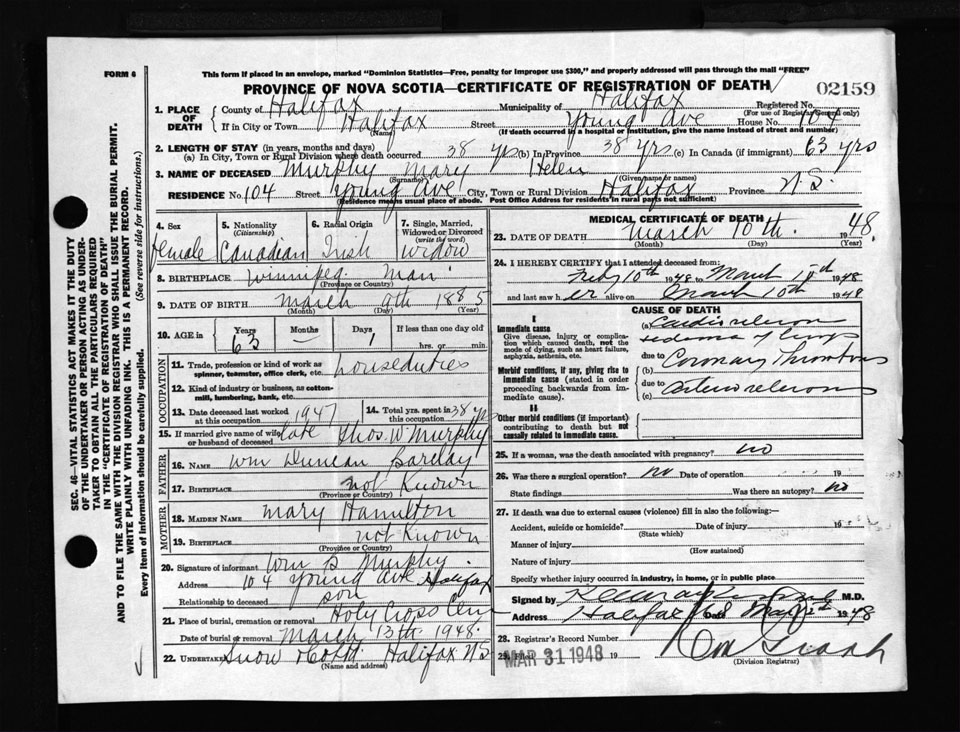 FORM 6
This form if placed in an envelope, marked "Dominion Statistics—Free, penalty for improper use $300," and properly addressed will pass through the mail "FREE"
PROVINCE OF NOVA SCOTIA—CERTIFICATE OF REGISTRATION OF DEATH
02159
1. PLACE OF DEATH County of Halifax Municipality of Halifax Registered No.
(For use of Registrar General only)
If in City or Town Halifax Street Young Ave House No. 104
(Name) (If death occurred in a hospital or institution, give the name instead of street and number)
2. LENGTH OF STAY (in years, months and days)
(a) In City, Town or Rural Division where death occurred 38 yrs (b) In Province 38 yrs (c) In Canada (if immigrant) 63 yrs
3. NAME OF DECEASED Murphy Mary Helen
(Surname) (Given name or names)
RESIDENCE No. 104 Street Young Ave City, Town or Rural Division Halifax Province N.S.
(Residence means usual place of abode. Post Office Address for residents in rural parts not sufficient)
4. Sex Female
5. Nationality (Citizenship) Canadian
6. Racial Origin Irish
7. Single, Married, Widowed or Divorced (write the word) Widow
8. BIRTHPLACE Winnipeg Man
(Province or Country)
9. DATE OF BIRTH March 9th 1885
(Month) (Day) (Year)
10. AGE in Years 63 Months — Days 1 If less than one day old hrs. or min.
OCCUPATION
11. Trade, profession or kind of work as spinner, teamster, office clerk, etc. houseduties
12. Kind of industry or business, as cotton-mill, lumbering, bank, etc.
13. Date deceased last worked at this occupation 1947
14. Total yrs. spent in this occupation 38 yrs
15. If married give name of wife or husband of deceased late Thos. W Murphy
FATHER
16. NAME Wm Duncan Barclay
17. BIRTHPLACE not Known
(Province or Country)
MOTHER
18. MAIDEN NAME Mary Hamilton
19. BIRTHPLACE not Known
(Province or Country)
20. Signature of informant Wm B Murphy
Address 104 Young Ave Halifax
Relationship to deceased son
21. Place of burial, cremation or removal Holy Cross Cem
Date of burial or removal March 13th 1948
22. Undertaker Snow & Co Ltd Halifax NS
(Name and address)
MEDICAL CERTIFICATE OF DEATH
23. DATE OF DEATH March 10th 1948
(Month) (Day) (Year)
24. I HEREBY CERTIFY that I attended deceased from:
Feby 10th 1948 to March 10th 1948
and last saw her alive on March 10th 1948
CAUSE OF DEATH
I
Immediate cause
Give disease, injury or complication which caused death, not the mode of dying, such as heart failure, asphyxia, asthenia, etc.
(a)
edema of lungs
due to
Morbid conditions, if any, giving rise to immediate cause (stated in order proceeding backwards from immediate).
(b) Coronary Thrombosis
due to
(c)
II
Other morbid conditions (if important) contributing to death but not causally related to immediate cause.
25. If a woman, was the death associated with pregnancy? no
26. Was there a surgical operation? no Date of operation 19
State findings Was there an autopsy? no
27. If death was due to external causes (violence) fill in also the following:—
Accident, suicide or homicide? Date of injury 19
(State which)
Manner of injury
(How sustained)
Nature of injury
Specify whether injury occurred in industry, in home, or in public place
Signed by M.D.
Halifax NS Date 1948
28. Registrar's Record Number
29. Filed MAR 31 1948 19
(Division Registrar)
SEC. 46—VITAL STATISTICS ACT MAKES IT THE DUTY
OF THE UNDERTAKER OR PERSON ACTING AS UNDER-
TAKER TO OBTAIN ALL THE PARTICULARS REQUIRED
IN THE "CERTIFICATE OF REGISTRATION OF DEATH"
AND TO FILE THE SAME WITH THE DIVISION REGISTRAR WHO SHALL ISSUE THE BURIAL PERMIT.
WRITE PLAINLY WITH UNFADING INK. THIS IS A PERMANENT RECORD.
Every item of information should be carefully supplied. (See reverse side for instructions.)